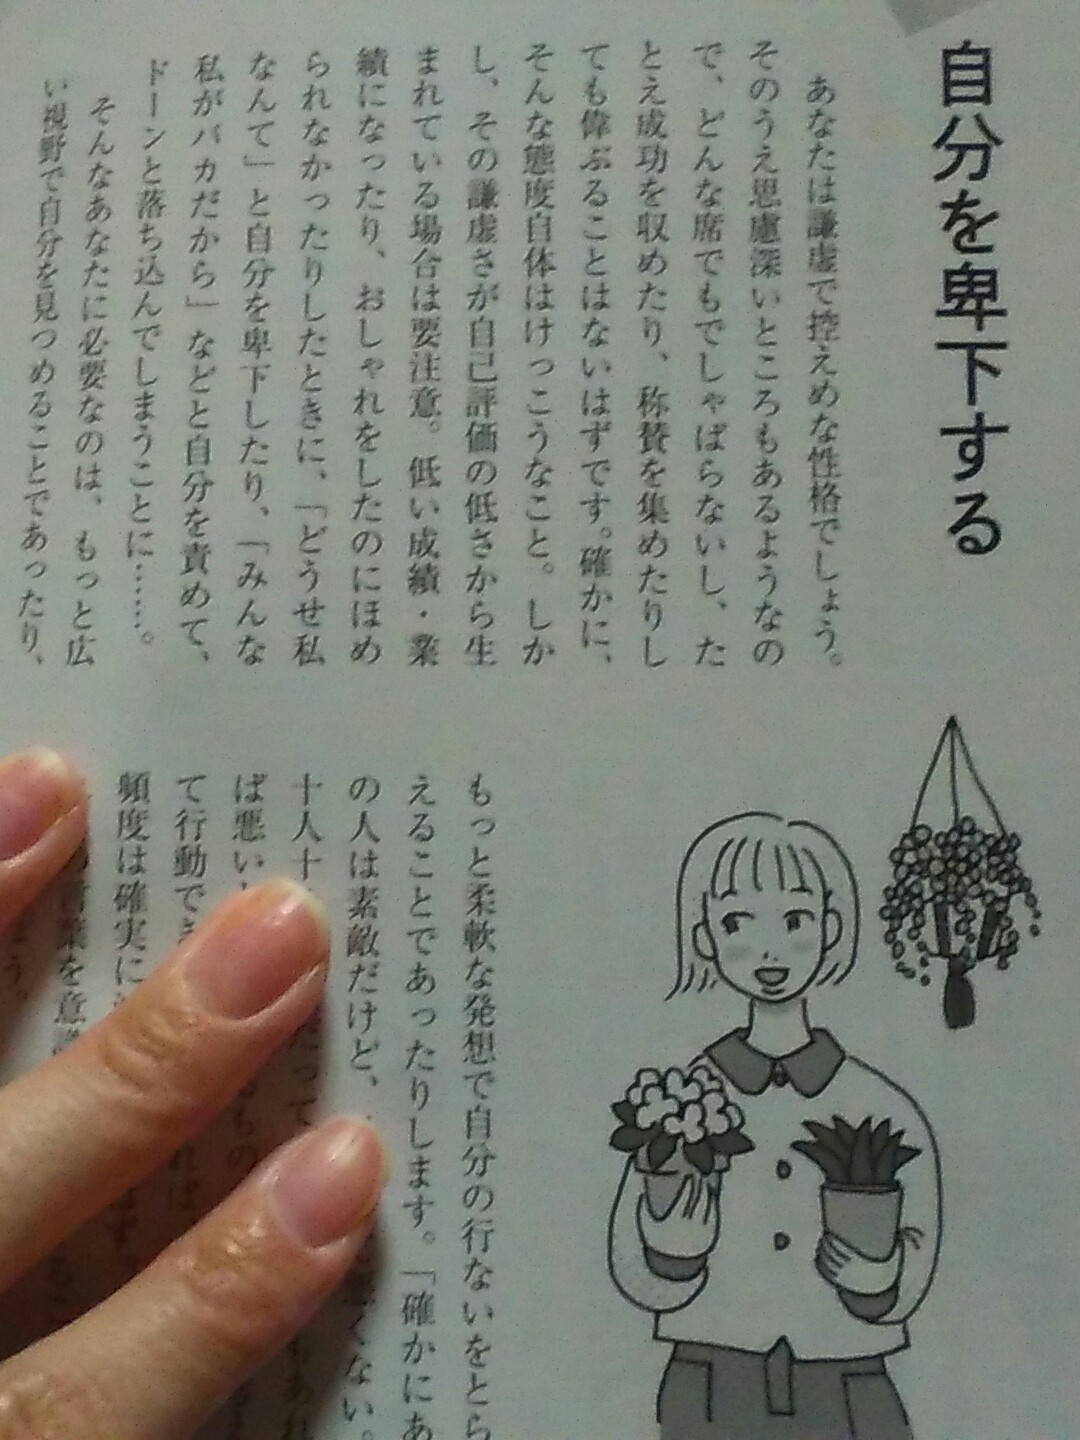 自分を卑下する
あなたは謙虚で控えめな性格でしょう。
そのうえ思慮深いところもあるようなの
で、どんな席でもでしゃばらないし、た
とえ成功を収めたり、称賛を集めたりし
ても偉ぶることはないはずです。確かに、
そんな態度自体はけっこうなこと。しか
し、その謙虚さが自己評価の低さから生
まれている場合は要注意。低い成績・業
績になったり、おしゃれをしたのにほめ
られなかったりしたときに、「どうせ私
なんて」と自分を卑下したり、「みんな
私がバカだから」などと自分を責めて、
ドーンと落ち込んでしまうことに……。
そんなあなたに必要なのは、もっと広
い視野で自分を見つめることであったり、
もっと柔軟な発想で自分の行ないをとら
えることであったりします。「確かにあ
の人は素敵だけど、
十人十
ば悪い
て行動でき
頻度は確実に